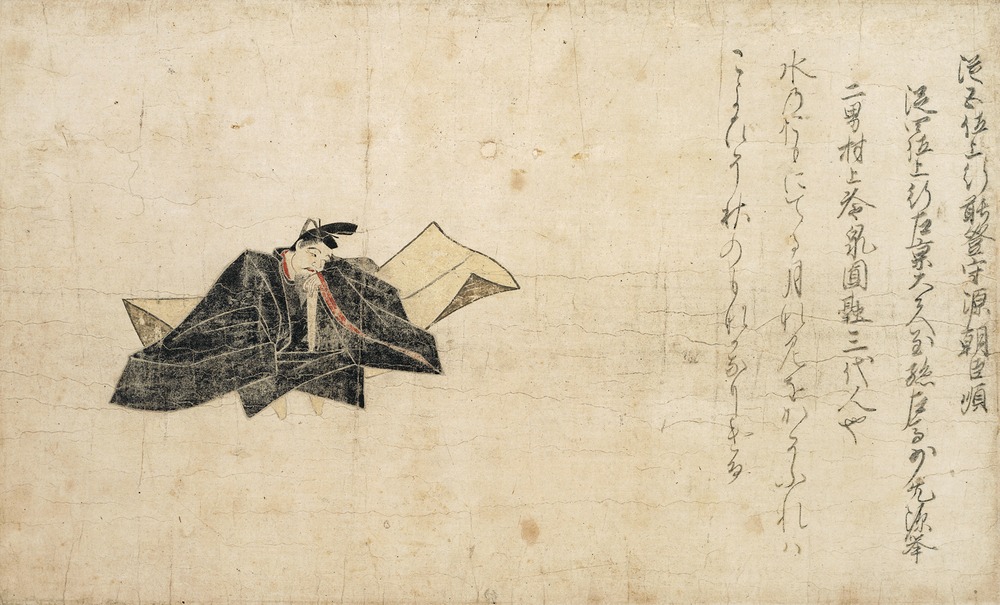 従五位上行能登守源朝臣順
従四位上行左京大夫至孫左馬少允源挙
二男村上冷泉圓融三代人也
水乃おもにてる月なみをかそふれハ
こよひそ秋のもなかなりける